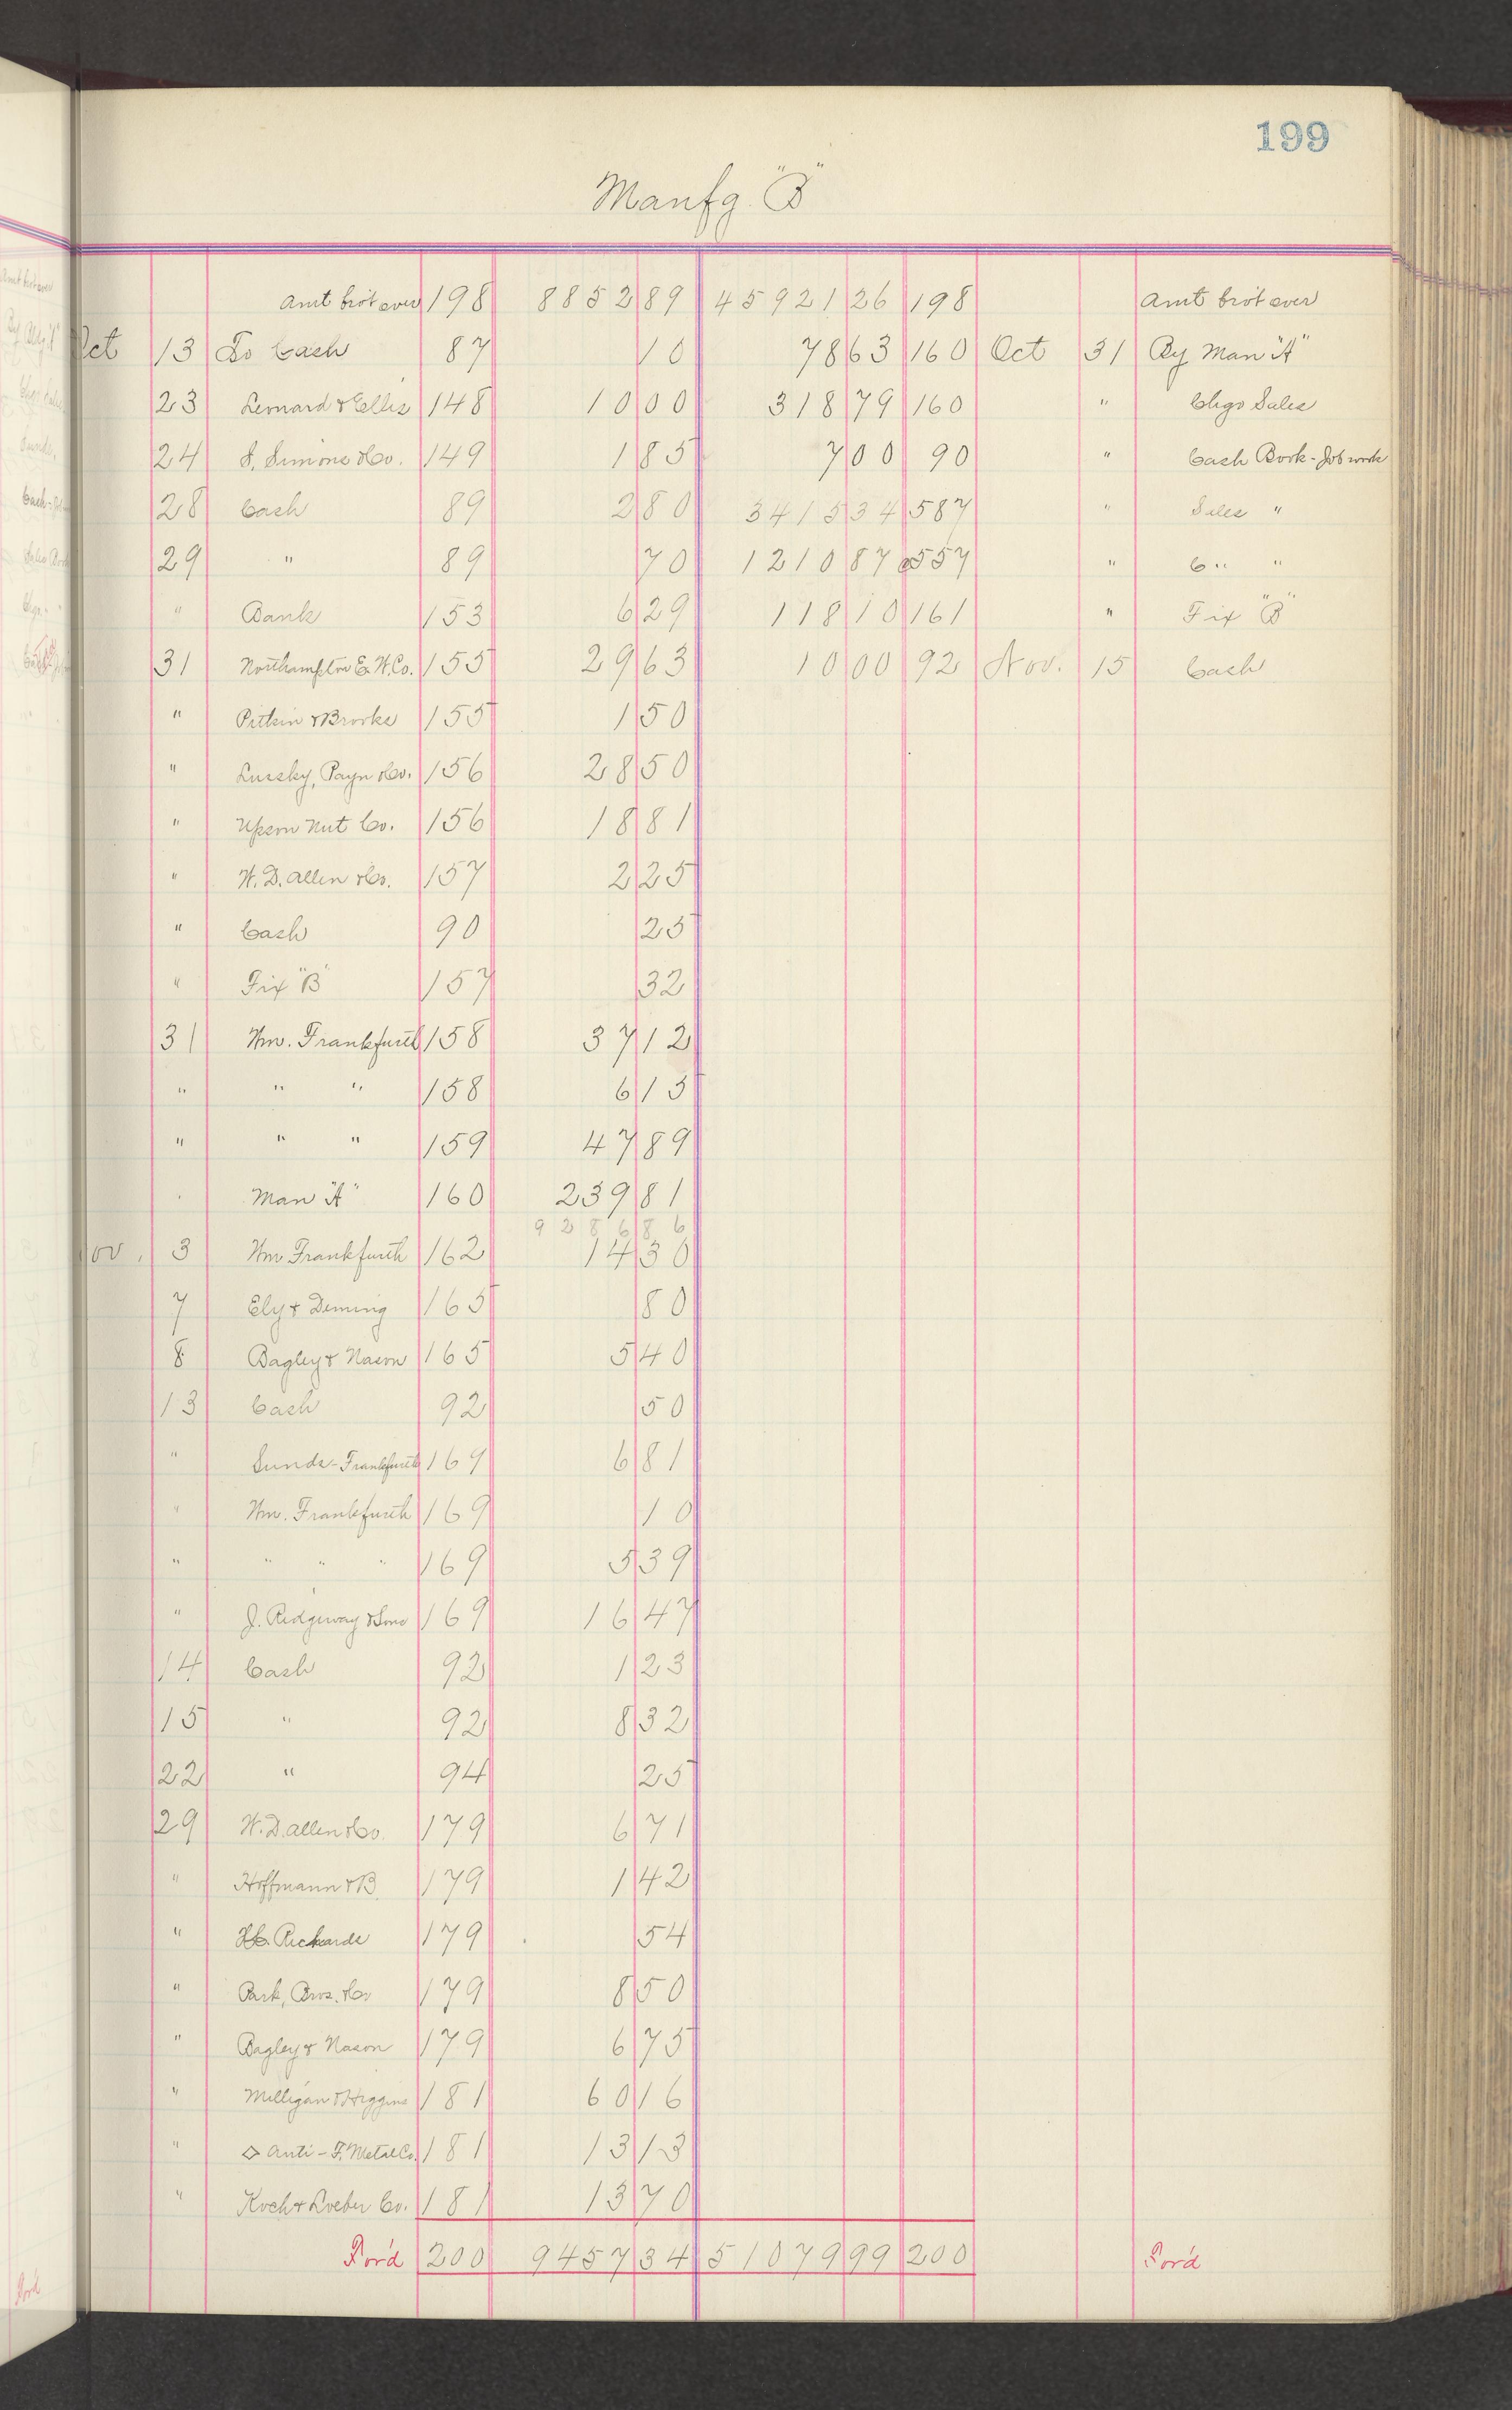 199
Manfg. "B"
Amt bro't over 198 8852 89 45921 26 198 Amt bro't over
Oct 13 To Cash 87 10 78 63 160 Oct 31 By Man "A"
23 Leonard & Ellis 148 10 00 318 79 160 " Chgo Sales
24 S. Simons & Co. 149 1 85 7 00 90 " Cash Book - Job work
28 Cash 89 2 80 3415 34 587 " Sales "
29 " 89 70 1210 87 557 " C " "
" Bank 153 6 29 118 10 161 " Fix "B"
31 Northampton E. W. Co. 155 29 63 10 00 92 Nov. 15 Cash
" Pitkin & Brooks 155 1 50
" Lussky, Payn & Co. 156 28 50
" Upson Nut Co. 156 18 81
" W. D. Allen & Co. 157 2 25
" Cash 90 25
" Fix "B" 157 32
31 Wm. Frankfurth 158 37 12
" " " 158 6 15
" " " 159 47 89
Man "A" 160 239 81
9286 86
Nov. 3 Wm Frankfurth 162 14 30
7 Ely & Deming 165 80
8 Bagley & Nason 165 5 40
13 Cash 92 50
" Sunds - Frankfurth 169 6 81
" Wm. Frankfurth 169 10
" " " " 169 5 39
" J. Ridgway & Sons 169 16 47
14 Cash 92 1 23
15 " 92 8 32
22 " 94 25
29 W. D. Allen & Co. 179 6 71
" Hoffmann & B 179 1 42
" Richards 179 54
" Park, Bros. & Co 179 8 50
" Bagley & Nason 179 6 75
" Milligan & Higgins 181 60 16
" Anti-F. Metal Co. 181 13 13
" Koch & Loeber Co. 181 13 70
For'd 200 9457 34 51079 99 200 For'd